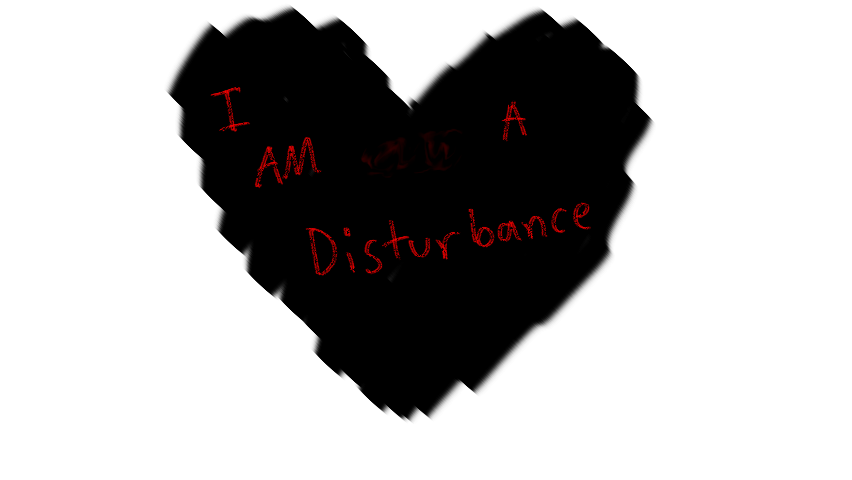 I
AM A
Disturbance